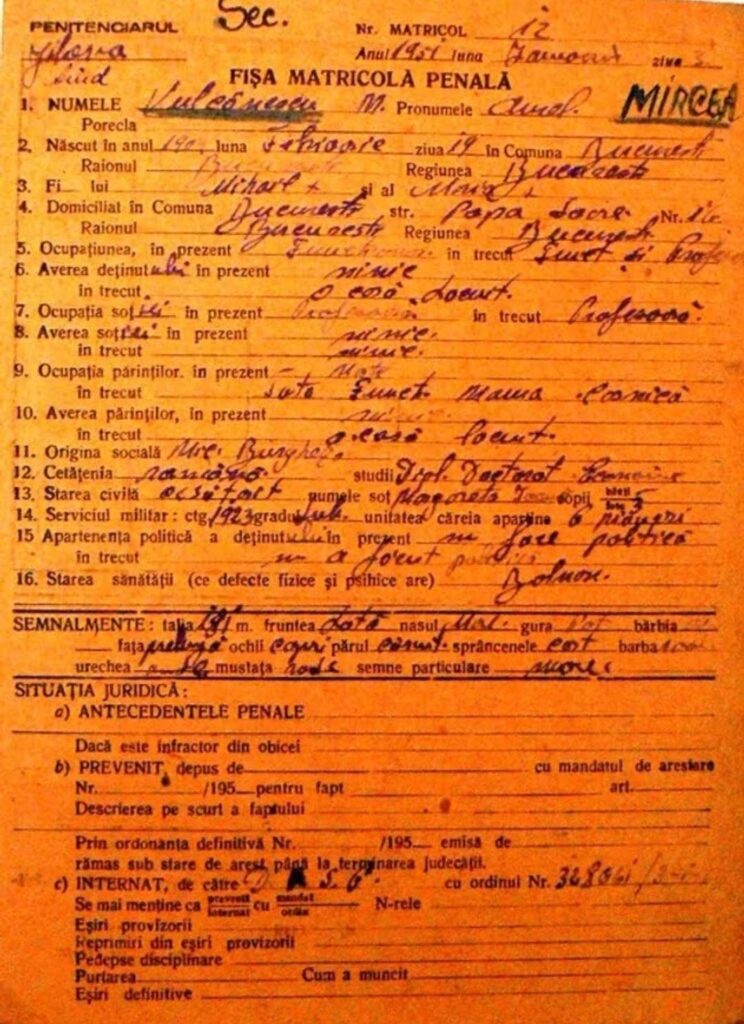 Sec.
PENITENCIARUL Nr. MATRICOL 12
Jilava Anul 1951 luna ziua
FIȘA MATRICOLĂ PENALĂ
1. NUMELE Vulcănescu M. Pronumele Aurel. MIRCEA
Porecla
2. Născut în anul 190 luna ziua 19 în Comuna București
Raionul București Regiunea București
3. Fi lui Mihail + și al Maria +
4. Domiciliat în Comuna București str. Popa Soare Nr. 16
Raionul București Regiunea București
5. Ocupațiunea, în prezent în trecut Funct și
6. Averea deținutului în prezent nimic
în trecut o casă locuit.
7. Ocupația soției în prezent în trecut Profesoară.
8. Averea soției în prezent nimic.
în trecut nimic.
9. Ocupația părinților. în prezent
în trecut tata Funct. mama casnică
10. Averea părinților, în prezent nimic.
în trecut o casă locuit.
11. Origina socială Mic. Burgheză
12. Cetățenia română. studii Dipl. Doctorat
13. Starea civilă căsătorit numele soț Margareta copii 5
14. Serviciul militar: ctg 1923 gradul Sub. unitatea căreia aparține 6
15 Apartenența politică a deținutului în prezent nu face politică
în trecut n a făcut politică
16. Starea sănătății (ce defecte fizice și psihice are) Bolnav.
SEMNALMENTE: talia 181 m. fruntea lată nasul gura bărbia
fața ochii părul cărunt. sprâncenele barba
urechea mustața rade semne particulare
SITUAȚIA JURIDICĂ:
a) ANTECEDENTELE PENALE
Dacă este infractor din obicei
b) PREVENIT, depus de cu mandatul de arestare
Nr. /195 pentru fapt art.
Descrierea pe scurt a faptului
Prin ordonanța definitivă Nr. /195 emisă de
rămas sub stare de arest până la terminarea judecății.
c) INTERNAT, de către cu ordinul Nr.
Se mai menține ca prevenit internat cu mandat ordin N-rele
Eșiri provizorii
Reprimiri din eșiri provizorii
Pedepse disciplinare
Purtarea Cum a muncit
Eșiri definitive